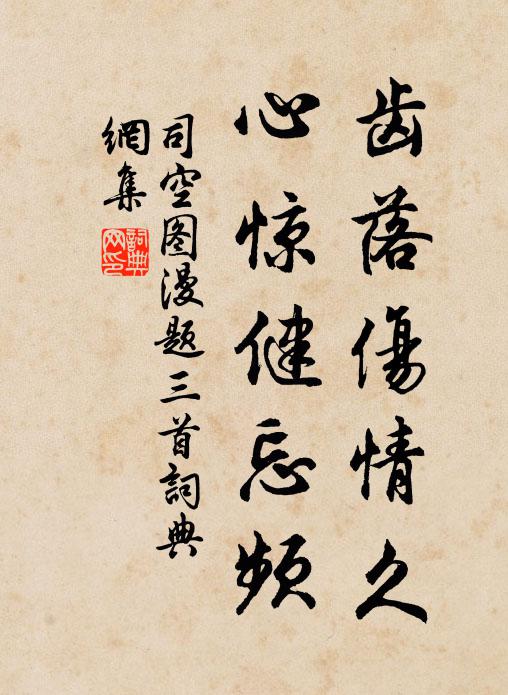 齿落傷情久
心惊健忘频
司空图漫题三首詞典
網集
詞典網印